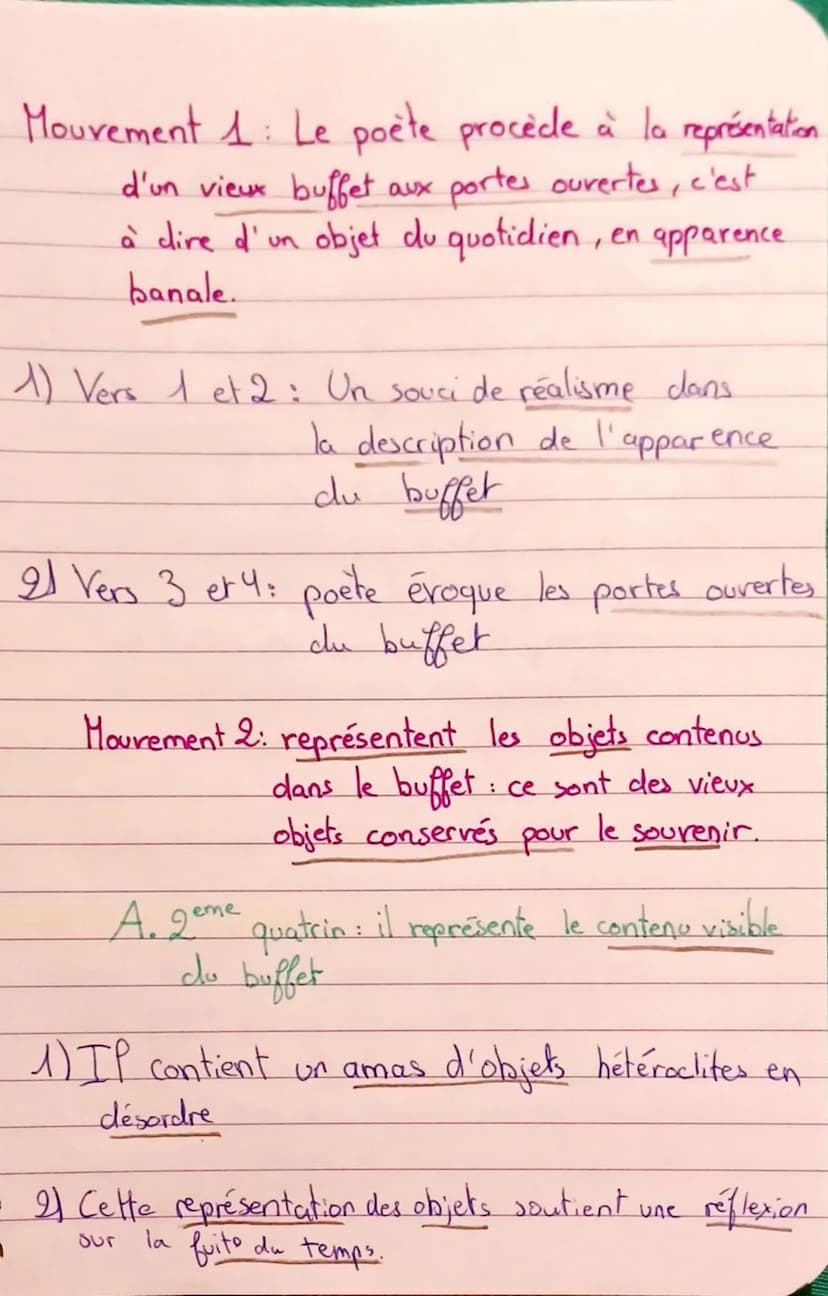 Mouvement 1 : Le poète procède à la représentation
d'un vieux buffet aux portes ouvertes, c'est
à dire d'un objet du quotidien, en apparence
banale.
1) Vers 1 et 2 : Un souci de réalisme dans
la description de l'apparence
du buffet
2) Vers 3 et 4 : poète évoque les portes ouvertes
du buffet
Mouvement 2 : représentent les objets contenus
dans le buffet : ce sont des vieux
objets conservés pour le souvenir.
A. 2eme quatrin : il représente le contenu visible
du buffet
1) Il contient un amas d'objets hétéroclites en
désordre
2) Cette représentation des objets soutient une réflexion
sur la fuite du temps.